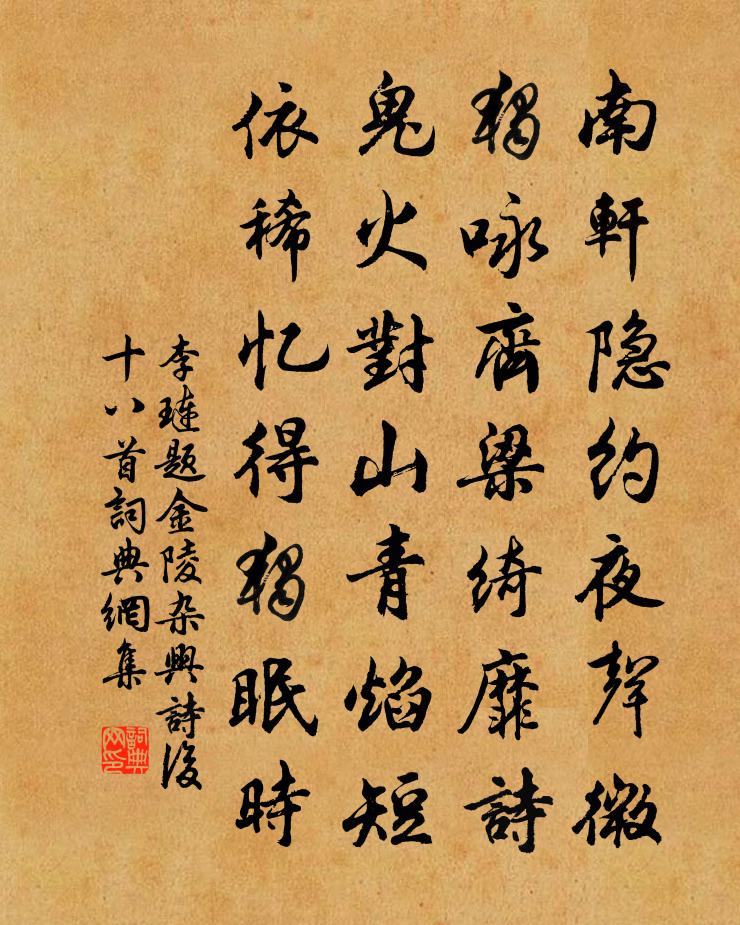 南軒隐約夜聲微
獨咏齊梁綺靡詩
鬼火對山青焰短
依稀忆得獨眠時
李璉题金陵杂興詩後
十八首詞典網集
詞典网印